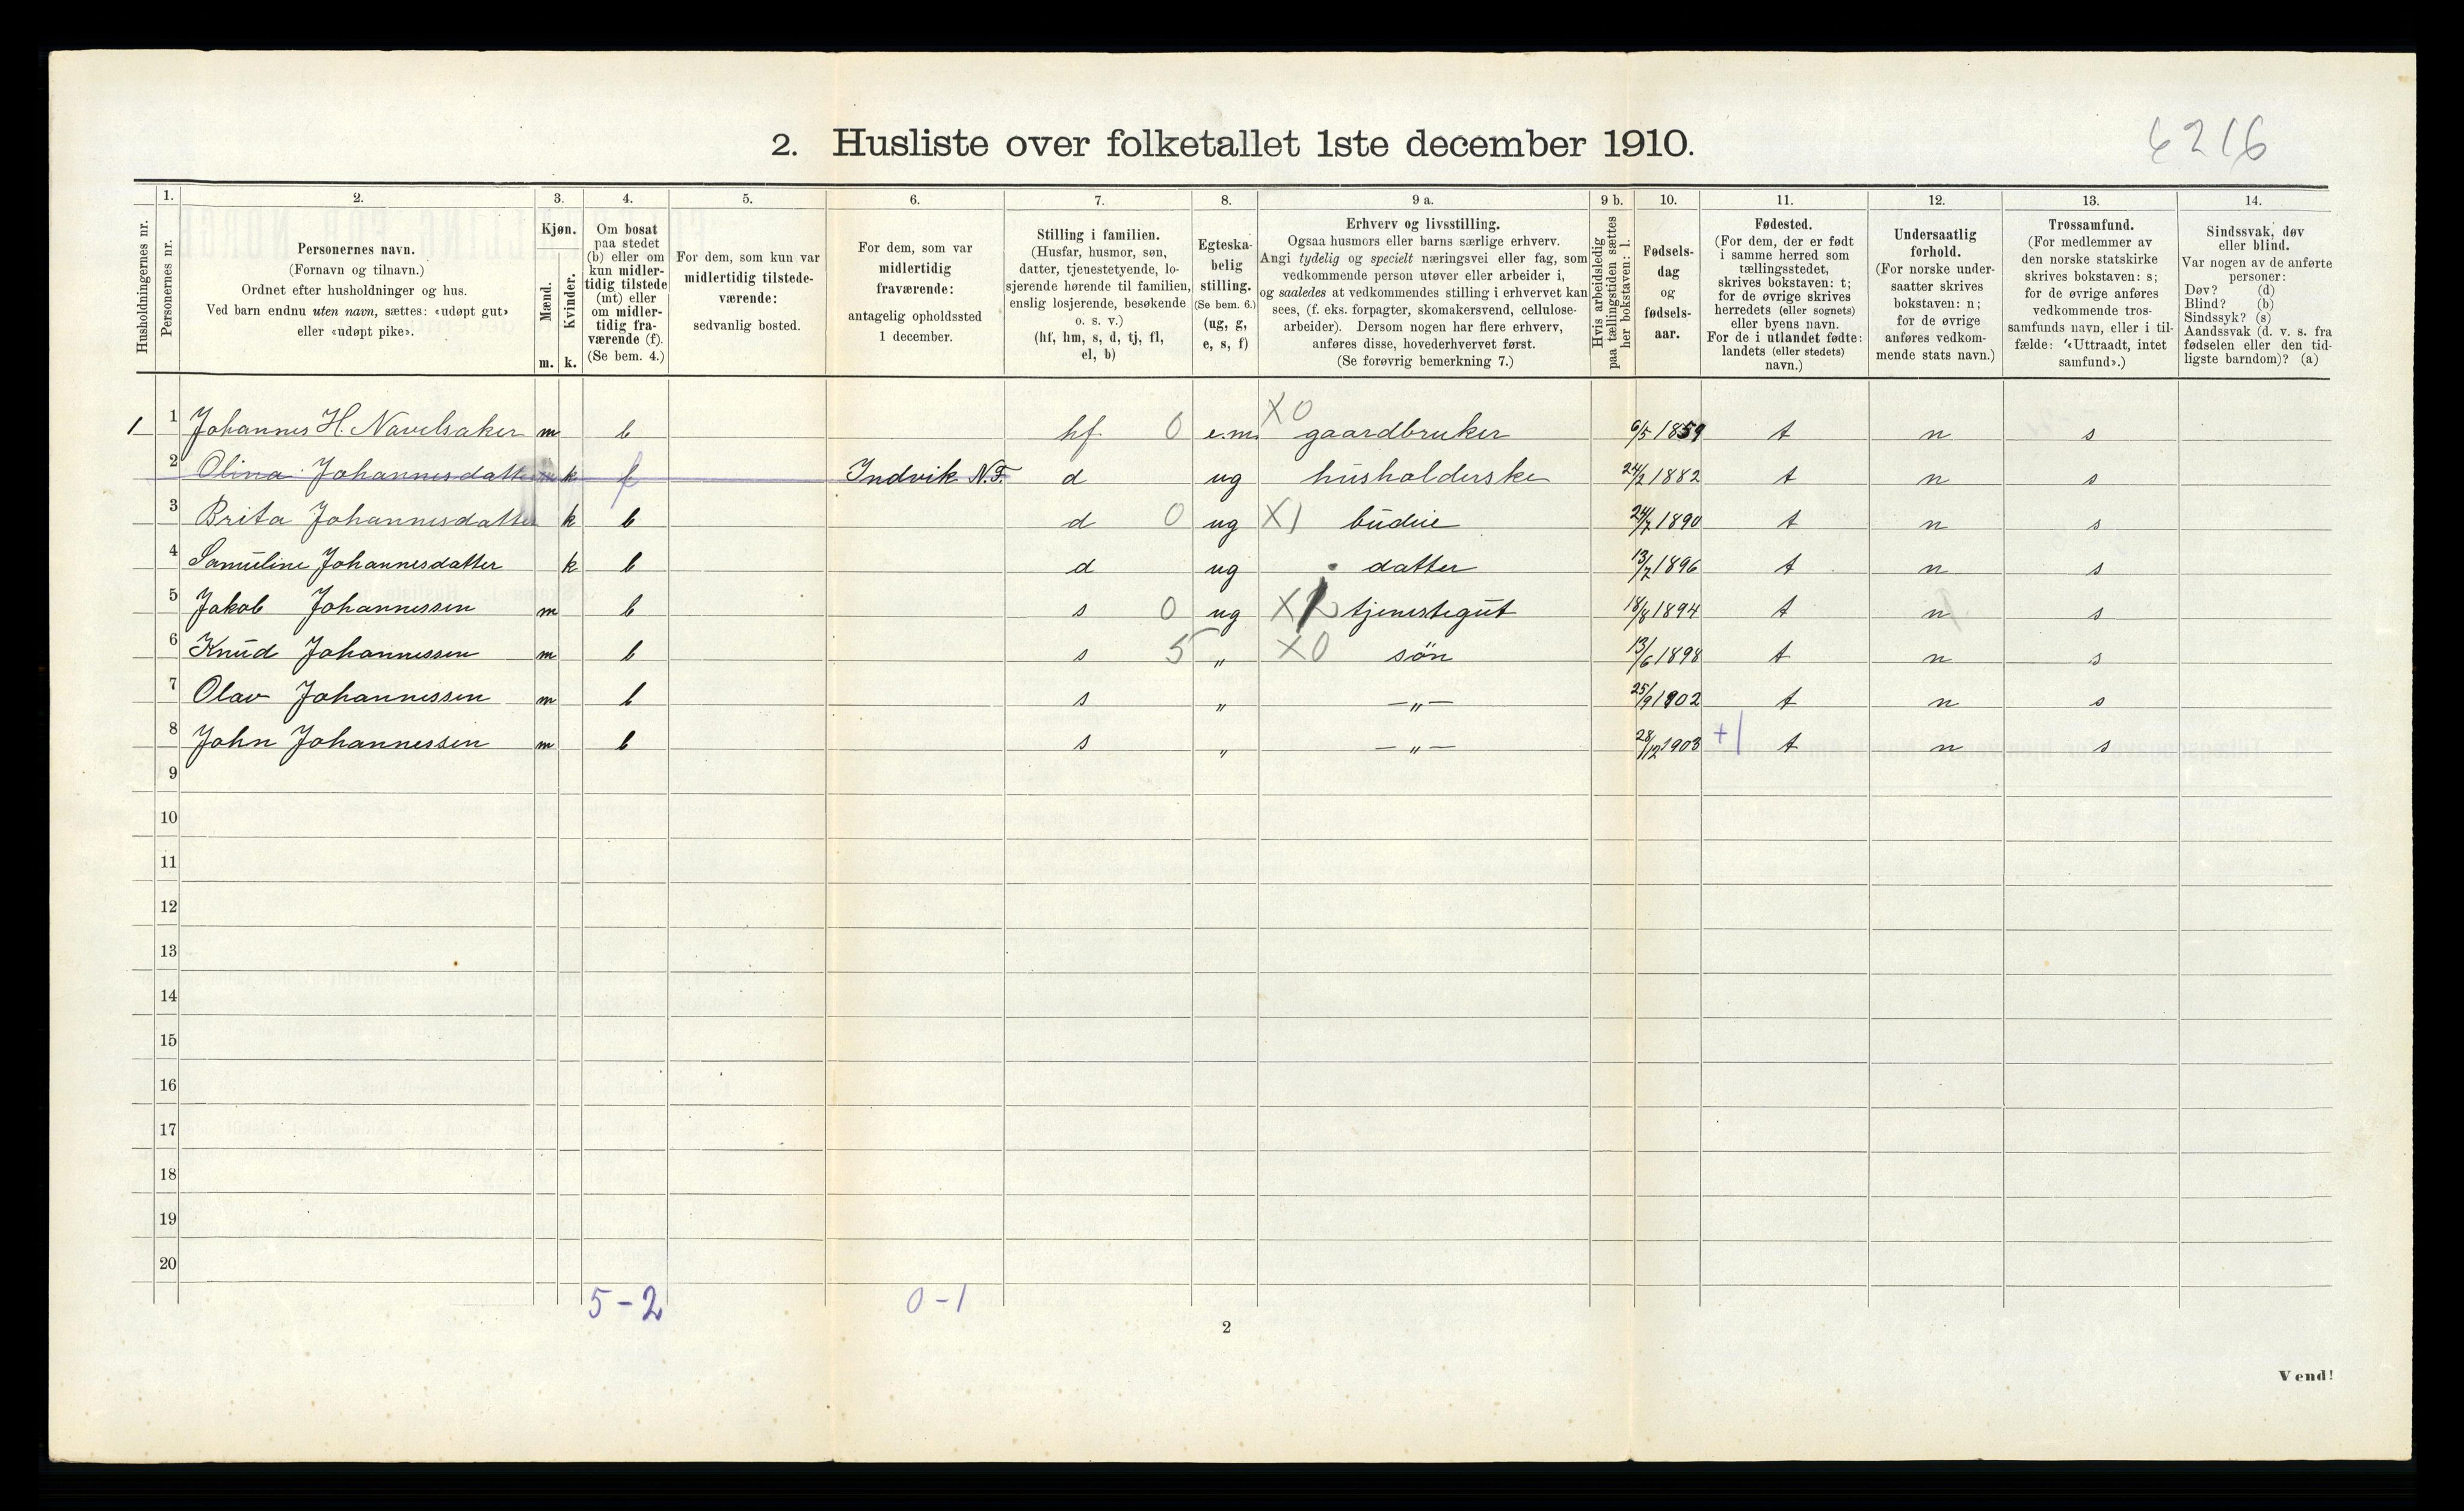 6216
2. Husliste over folketallet 1ste december 1910.
Husholdningernes nr.
1.
Personernes nr.
2.
Personernes navn.
(Fornavn og tilnavn.)
Ordnet efter husholdninger og hus.
Ved barn endnu uten navn, sættes: «udøpt gut»
eller «udøpt pike».
3.
Kjøn.
Mænd.
Kvinder.
m. k.
4.
Om bosat
paa stedet
(b) eller om
kun midler-
tidig tilstede
(mt) eller
om midler-
tidig fra-
værende (f).
(Se bem. 4.)
5.
For dem, som kun var
midlertidig tilstede-
værende:
sedvanlig bosted.
6.
For dem, som var
midlertidig
fraværende:
antagelig opholdssted
1 december.
7.
Stilling i familien.
(Husfar, husmor, søn,
datter, tjenestetyende, lo-
sjerende hørende til familien,
enslig losjerende, besøkende
o. s. v.)
(hf, hm, s, d, tj, fl,
el, b)
8.
Egteska-
belig
stilling.
(Se bem. 6.)
(ug, g,
e, s, f)
9 a.
Erhverv og livsstilling.
Ogsaa husmors eller barns særlige erhverv.
Angi tydelig og specielt næringsvei eller fag, som
vedkommende person utøver eller arbeider i,
og saaledes at vedkommendes stilling i erhvervet kan
sees, (f. eks. forpagter, skomakersvend, cellulose-
arbeider). Dersom nogen har flere erhverv,
anføres disse, hovederhvervet først.
(Se forøvrig bemerkning 7.)
9 b.
Hvis arbeidsledig
paa tællingstiden sættes
her bokstaven: l.
10.
Fødsels-
dag
og
fødsels-
aar.
11.
Fødested.
(For dem, der er født
i samme herred som
tællingsstedet,
skrives bokstaven: t;
for de øvrige skrives
herredets (eller sognets)
eller byens navn.
For de i utlandet fødte:
landets (eller stedets)
navn.)
12.
Undersaatlig
forhold.
(For norske under-
saatter skrives
bokstaven: n;
for de øvrige
anføres vedkom-
mende stats navn.)
13.
Trossamfund.
(For medlemmer av
den norske statskirke
skrives bokstaven: s;
for de øvrige anføres
vedkommende tros-
samfunds navn, eller i til-
fælde: «Uttraadt, intet
samfund».)
14.
Sindssvak, døv
eller blind.
Var nogen av de anførte
personer:
Døv? (d)
Blind? (b)
Sindssyk? (s)
Aandssvak (d. v. s. fra
fødselen eller den tid-
ligste barndom)? (a)
1 1 Johannes H. Navelsaker m b hf 0 e.m. X0 gaardbruker 6/5 1859 t n s
2 Olina Johannesdatter k f Indvik N.F. d ug husholderske 24/2 1882 t n s
3 Brita Johannesdatter k b d 0 ug X1 budeie 24/7 1890 t n s
4 Samuline Johannesdatter k b d ug datter 13/7 1896 t n s
5 Jakob Johannessen m b s 0 ug X tjenestegut 18/8 1894 t n s
6 Knud Johannessen m b s 5 „ X0 søn 13/6 1898 t n s
7 Olav Johannessen m b s „ —„— 25/9 1902 t n s
8 John Johannessen m b s „ —„— 28/12 1903 +1 t n s
9
10
11
12
13
14
15
16
17
18
19
20
5-2 0-1
2
Vend!